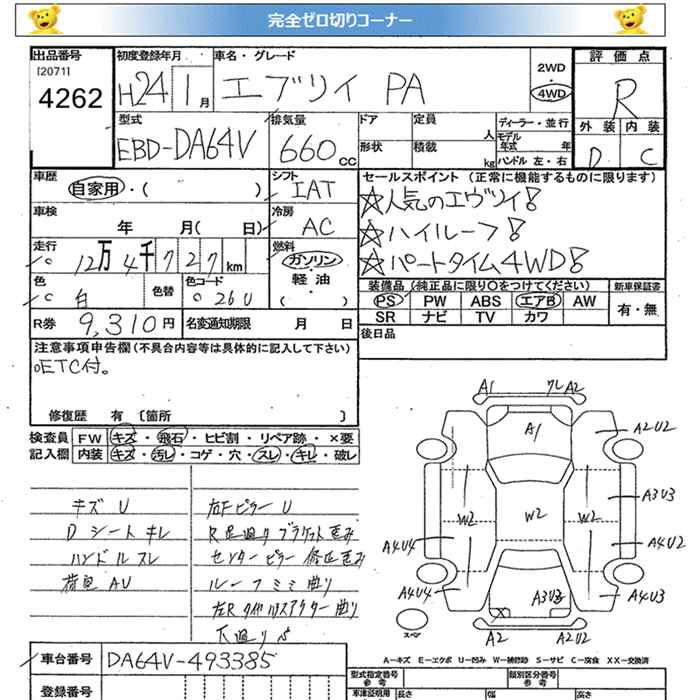 完全ゼロ切りコーナー
出品番号 [2071] 4262
初度登録年月 H24 1月
車名・グレード エブリィ PA
2WD・4WD
評価点 R
外装 D 内装 C
型式 EBD-DA64V
排気量 660cc
ドア 定員 人 ディーラー・並行
形状 積載 kg モデル年式 年
ハンドル 左・右
車歴 自家用・( )
シフト IAT
セールスポイント (正常に機能するものに限ります)
☆人気のエヴリイ!
☆ハイルーフ!
☆パートタイム4WD!
車検 年 月( 日)
冷房 AC
走行 12万4千727km
燃料 ガソリン・軽油・( )
色 白 色替 色コード 26U
装備品 (純正品に限り〇をつけてください) 新車保証書
PS PW ABS エアB AW 有・無
SR ナビ TV カワ
R券 9,310円 名変通知期限 月 日
後日品
注意事項申告欄 (不具合内容等は具体的に記入して下さい)
oETC付。
修復歴 有 〔箇所 〕
検査員記入欄 FW キズ・飛石・ヒビ割・リペア跡・×要
内装 キズ・汚レ・コゲ・穴・スレ・キレ・破レ
キズ U
Dシートキレ
ハンドルスレ
荷室AU
右Fピラー U
R足廻りブラケット歪み
センターピラー 修正歪み
ルーフミミ曲り
下廻りS
A1 クレA2
A1
A2U2
A3U3
W2 W2 W2
A4U4 A4U2
A4U4 A3U3 A4U3
X
スペア
A2 A2U2
A-キズ E-エクボ U-凹み W-補修跡 S-サビ C-腐食 XX-交換済
車台番号 DA64V-493385
登録番号
型式指定番号 参考
類別区分番号 参考
車庫証明用 長さ 幅 高さ